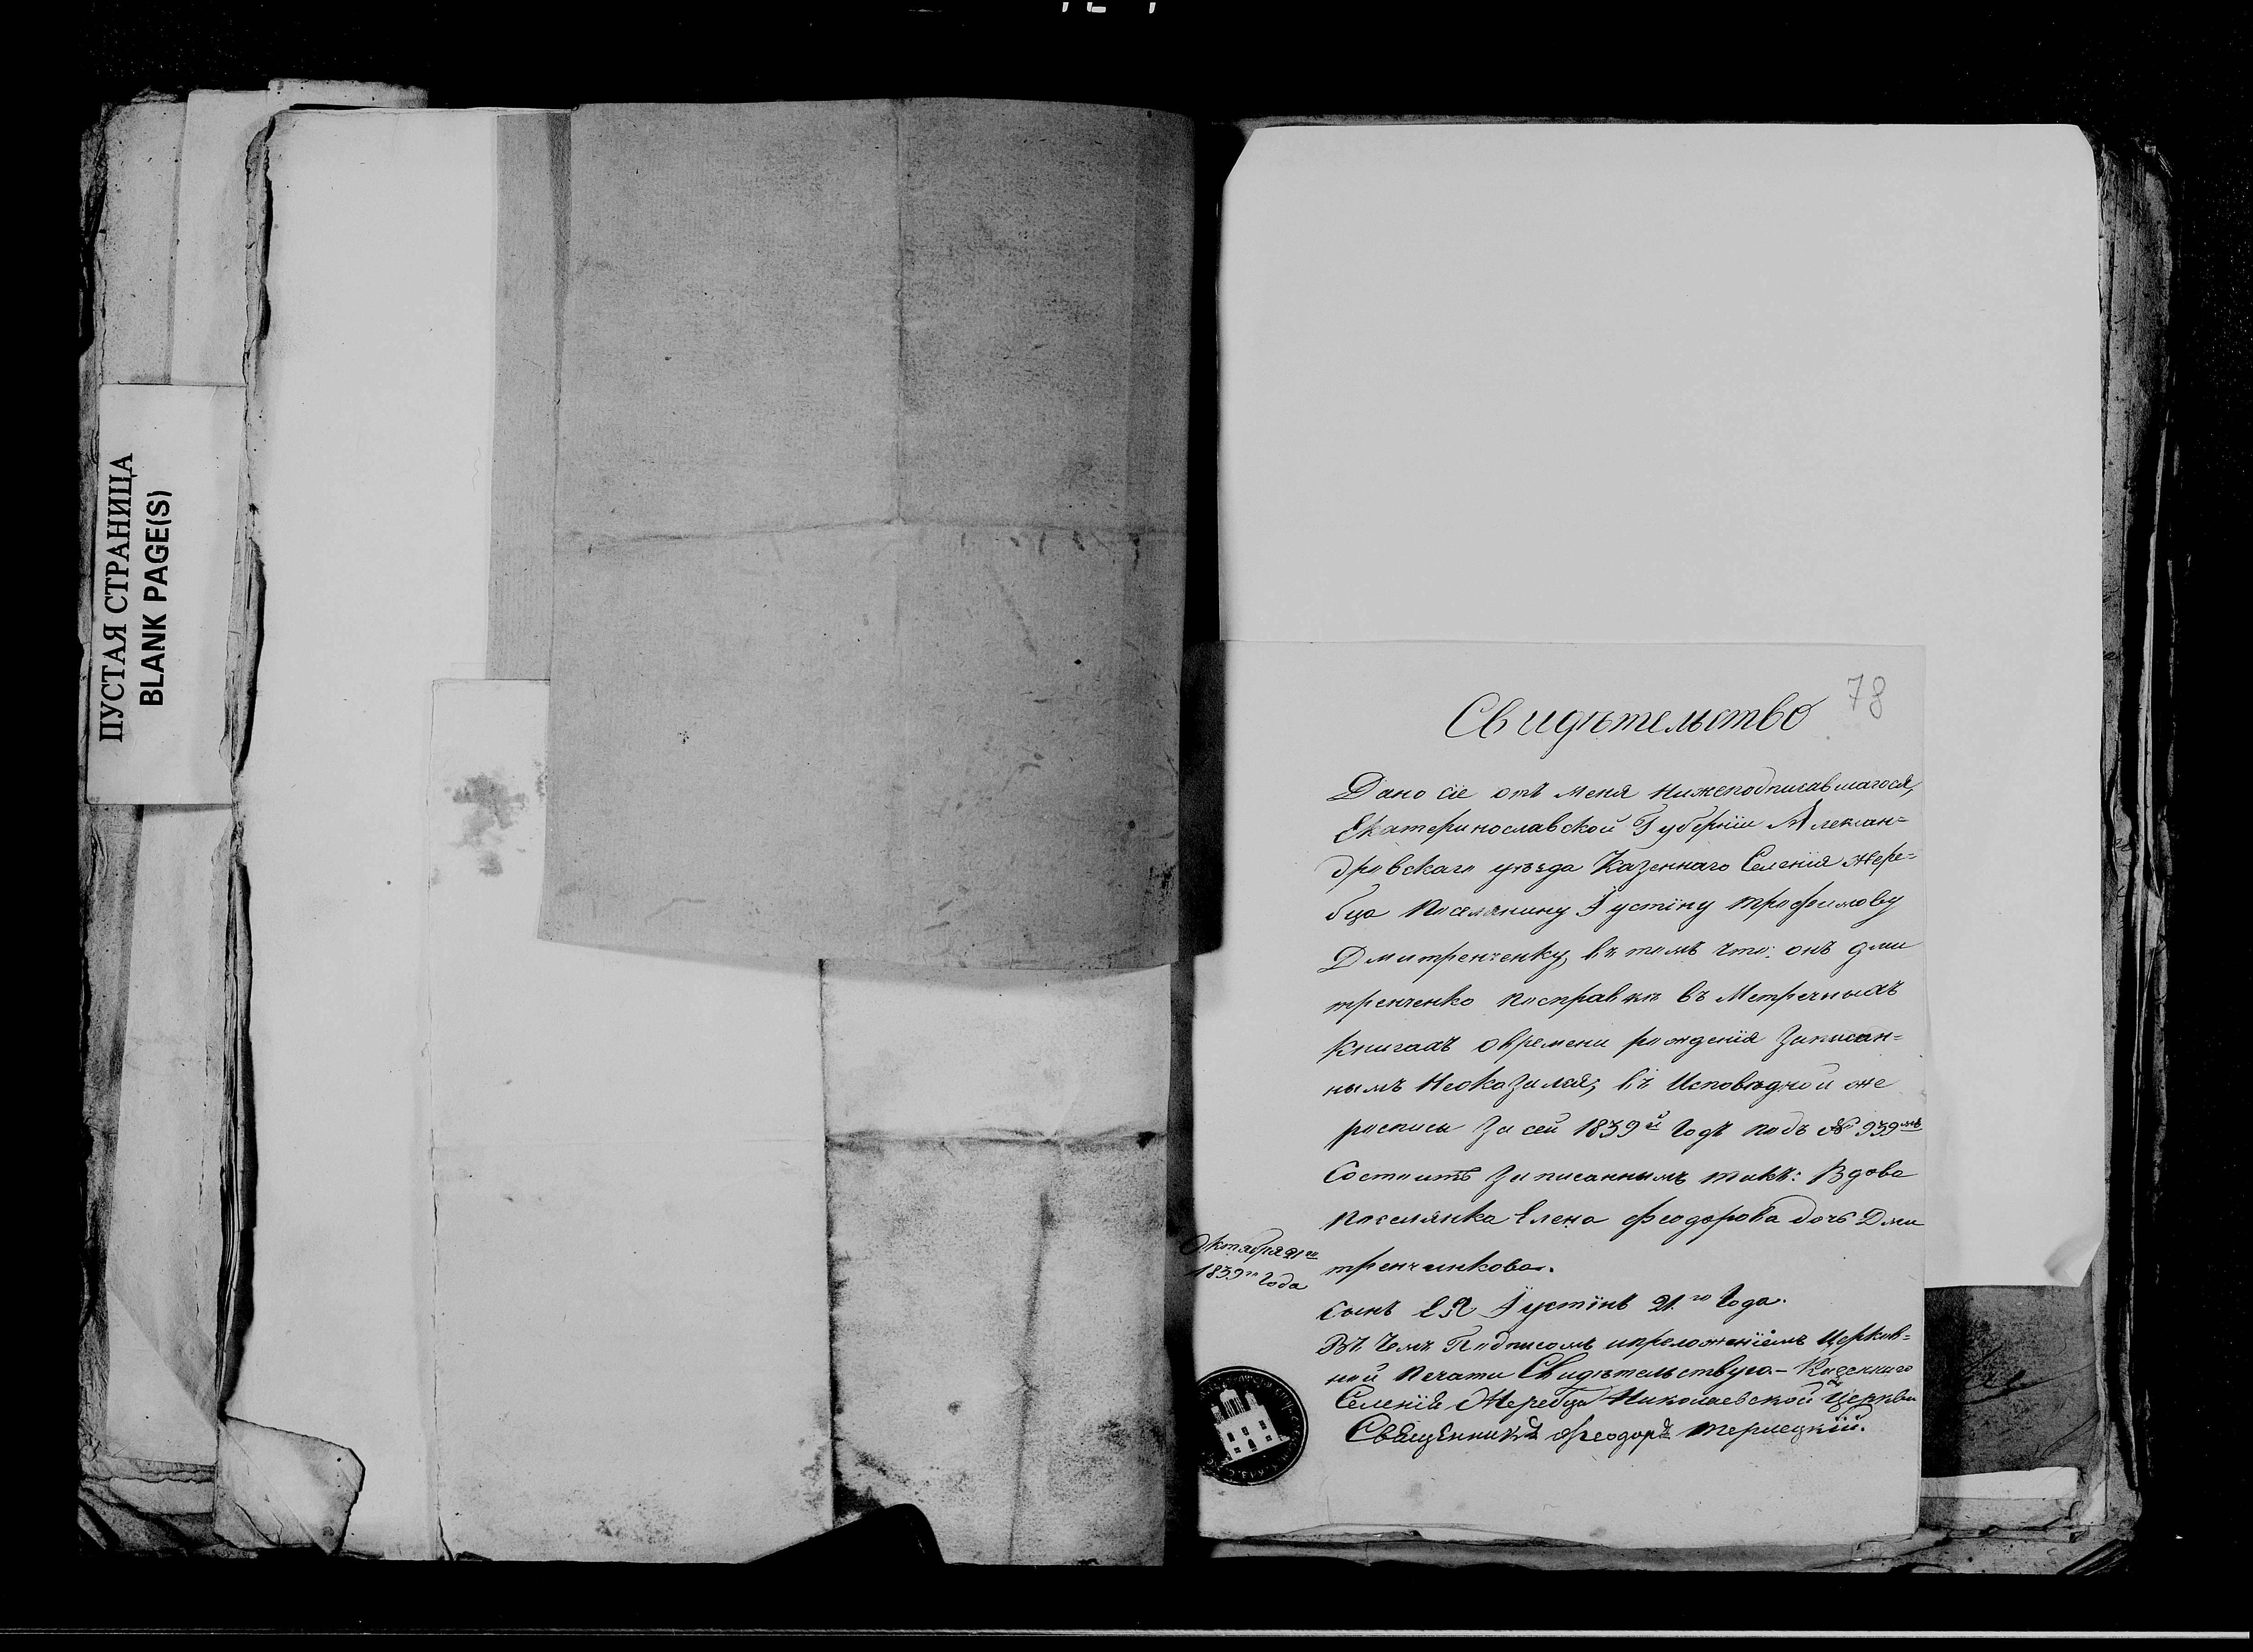 ПУСТАЯ СТРАНИЦА
BLANK PAGE(S)
78
Свидѣтельство
Дано сіе отъ меня нижеподписавшагося,
Екатеринославской Губерніи Алексан=
дровскаго уѣзда Казеннаго Селенія Жере=
бца поселянину Іустину трофимову
Дмитренченку, въ томъ что: онъ дми
тренченко посправкѣ въ Метречныхъ
книгахъ овремени рожденія записан=
нымъ неоказался; въ Исповѣдной же
росписи за сей 1839й годъ подъ № 939мъ
Состоитъ записаннымъ такъ: Вдова
поселянка Елена феодорова дочь Дми
тренченкова.
сынъ ея Іустинъ 21.го года.
Въ чемъ Подписомъ иприложеніемъ Церков=
ной печати Свидѣтельствую.- Казеннаго
Селенія Жеребца Николаевской Церкви
Священникъ Феодоръ Терлецкій.
Октября 21го
1839го года